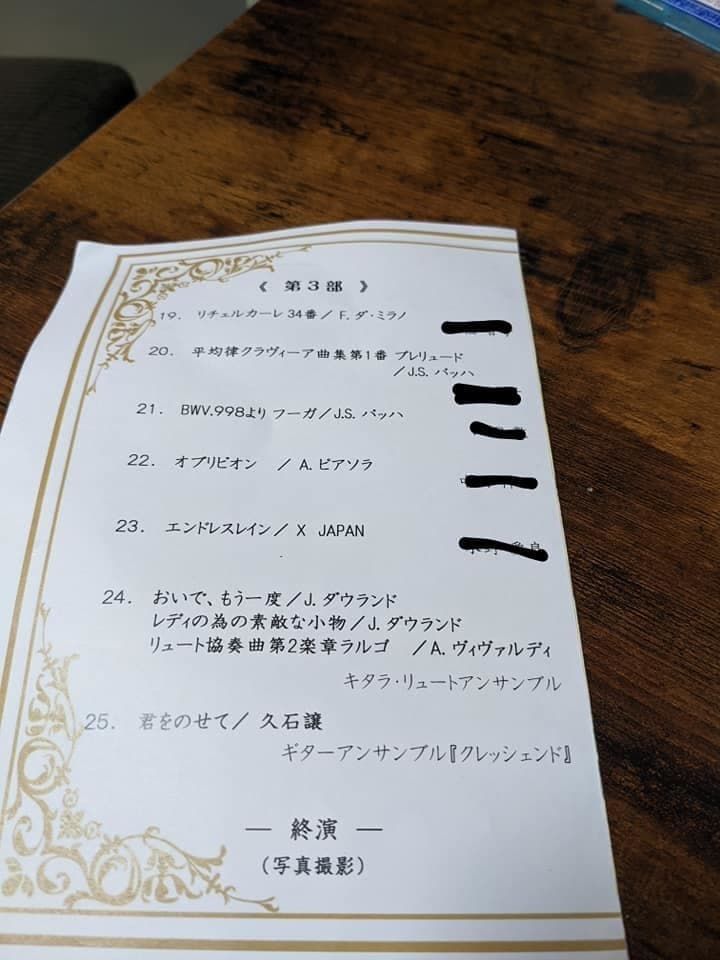 《 第3部 》
19. リチェルカーレ 34番 / F. ダ・ミラノ
20. 平均律クラヴィーア曲集第1番 プレリュード
/J.S. バッハ
21. BWV.998より フーガ/J.S. バッハ
22. オブリビオン / A. ピアソラ
23. エンドレスレイン/ X JAPAN
24. おいで、もう一度/J. ダウランド
レディの為の素敵な小物/J. ダウランド
リュート協奏曲第2楽章ラルゴ /A. ヴィヴァルディ
キタラ・リュートアンサンブル
25. 君をのせて/ 久石譲
ギターアンサンブル『クレッシェンド』
― 終演 ―
(写真撮影)